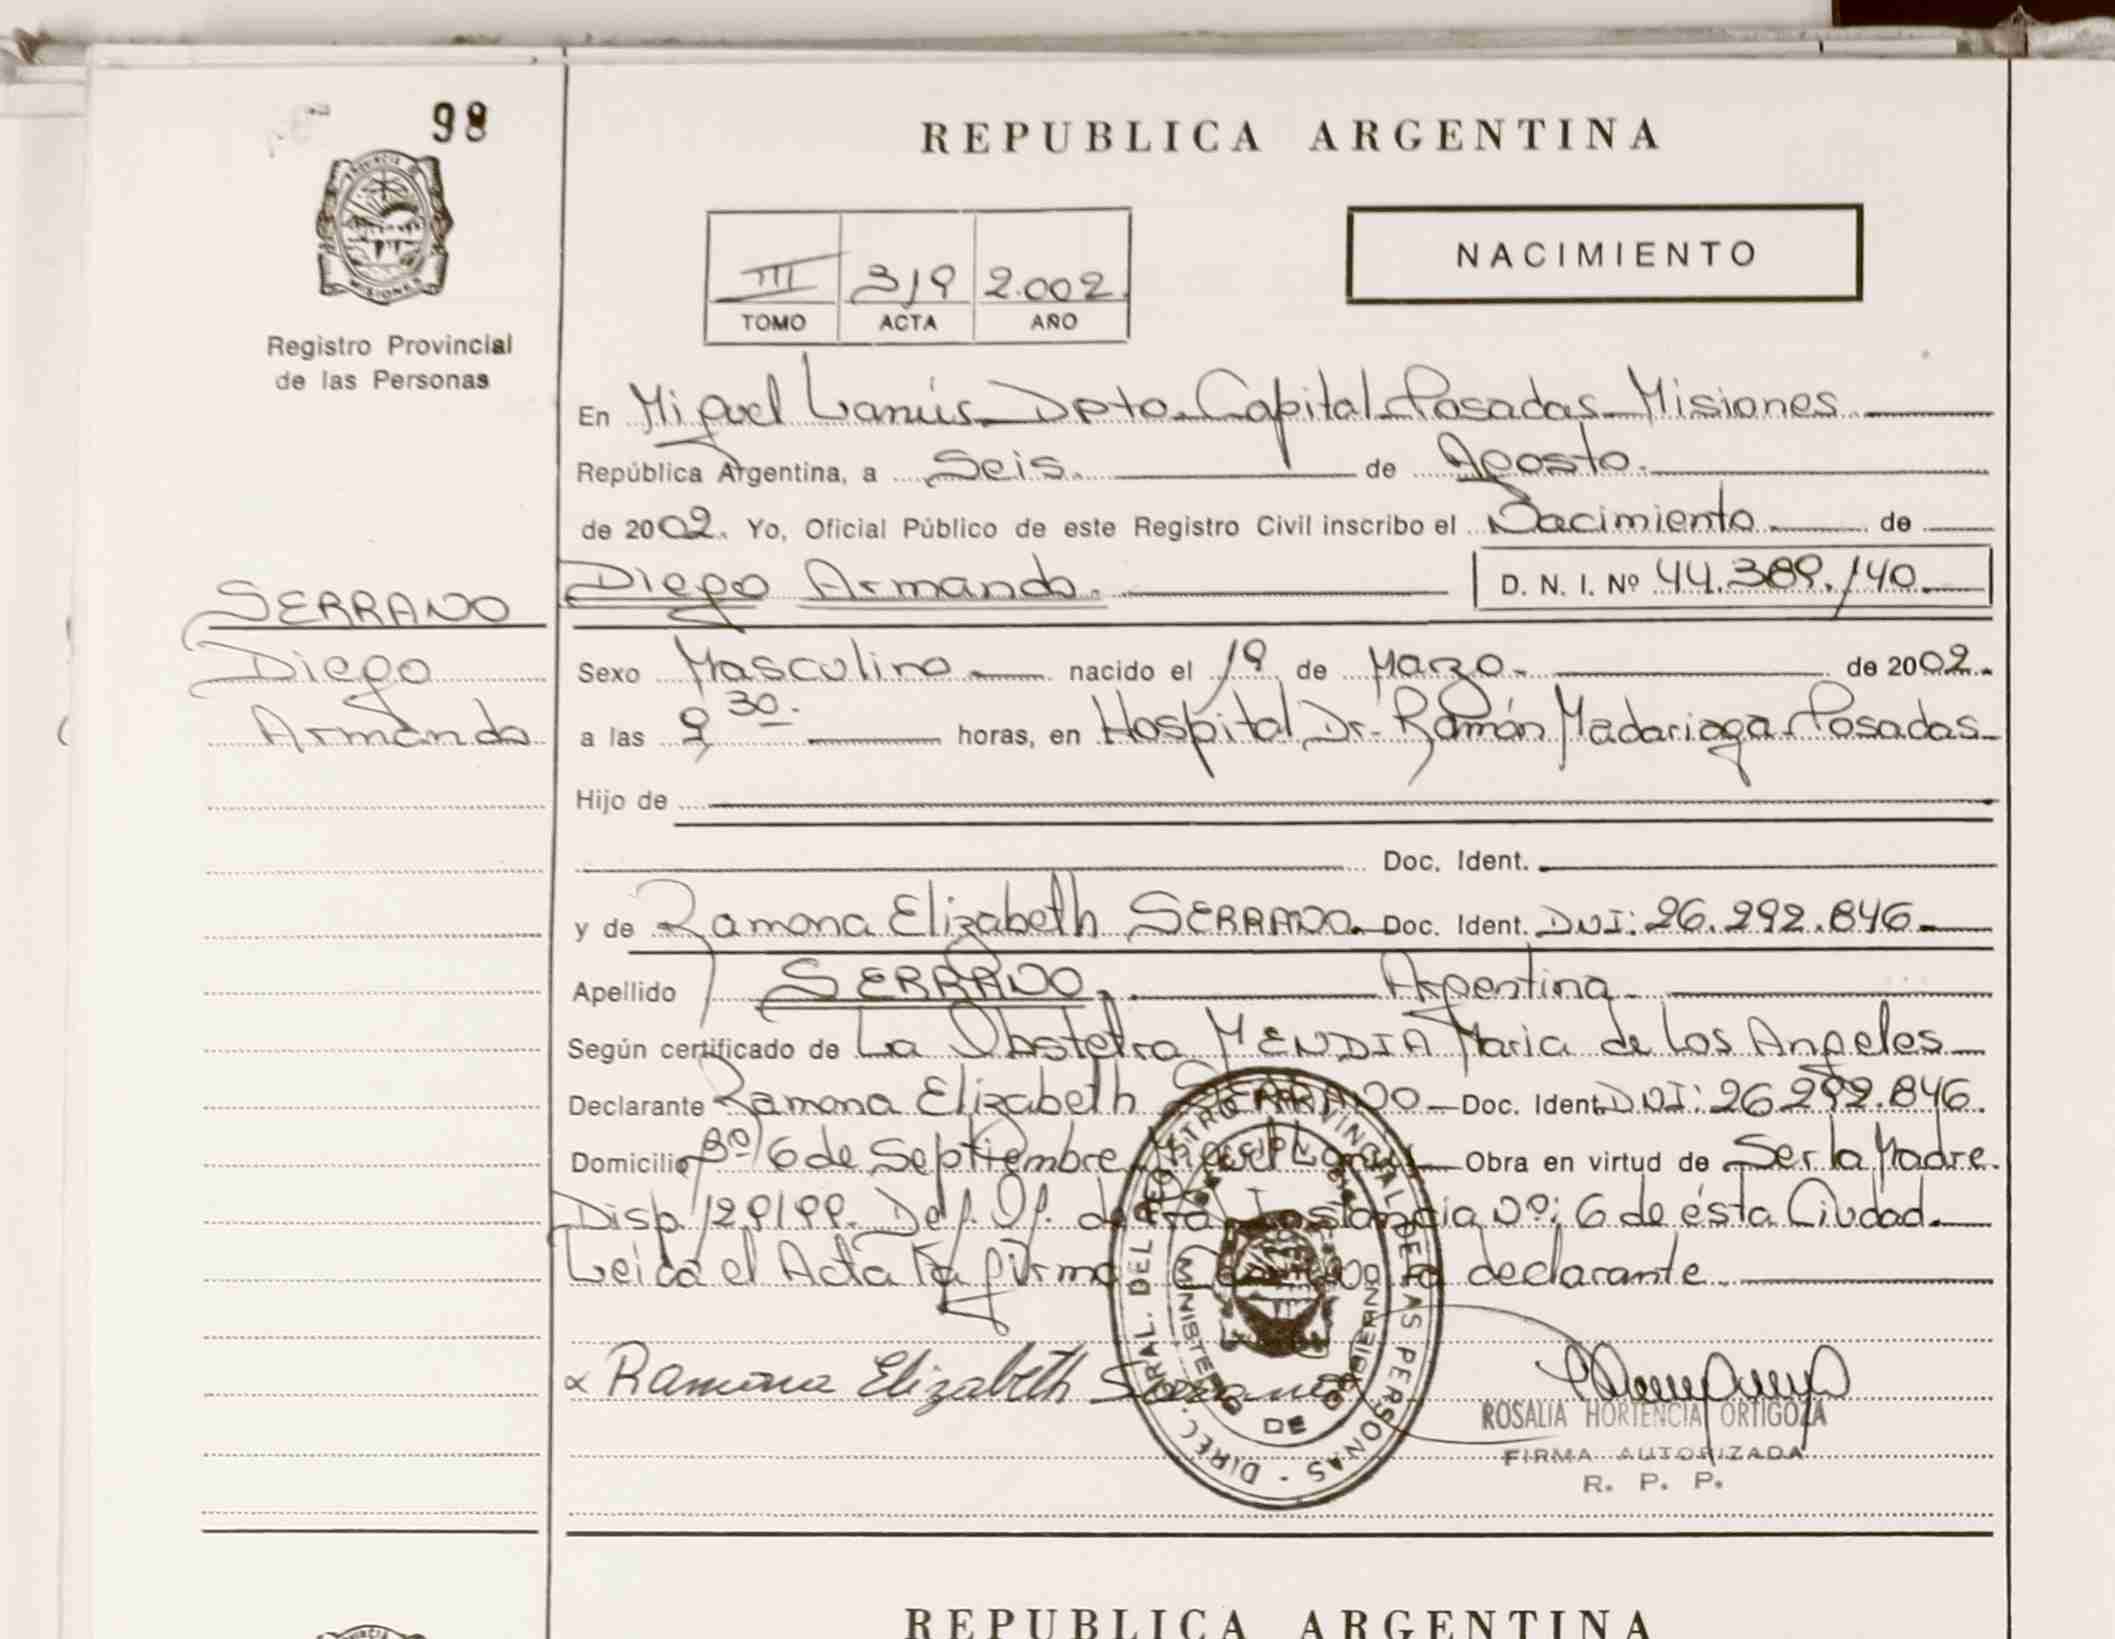 98
REPUBLICA ARGENTINA
PROVINCIA DE MISIONES
NACIMIENTO
III 319 2.002
TOMO ACTA AÑO
Registro Provincial
de las Personas
En Miguel Lanús Dpto. Capital Posadas Misiones
República Argentina, a Seis. de Agosto.
de 2002. Yo, Oficial Público de este Registro Civil inscribo el Nacimiento de
Diego Armando. D. N. I. Nº 44.389.140
SERRANO
Diego
Armando
Sexo Masculino nacido el 19 de Marzo. de 2002.
a las 9 30. horas, en Hospital Dr. Ramón Madariaga Posadas
Hijo de
Doc. Ident.
y de Ramona Elizabeth SERRANO. Doc. Ident. DNI: 26.292.846.
Apellido SERRANO. Argentina.
Según certificado de La Obstetra MENDIA Maria de Los Angeles
Declarante Ramona Elizabeth SERRANO Doc. Ident. DNI: 26.292.846.
Domicilio Bº 6 de Septiembre Miguel Lanús Obra en virtud de Ser la Madre.
Disp. 129/99. Def. Of. de Instancia Nº: 6 de ésta Ciudad.
Leida el Acta la firma declarante.
Ramona Elizabeth Serrano
DIREC. GRAL. DEL REGISTRO PROVINCIAL DE LAS PERSONAS
MINISTERIO DE GOBIERNO
ROSALIA HORTENCIA ORTIGOZA
FIRMA AUTORIZADA
R. P. P.
REPUBLICA ARGENTINA